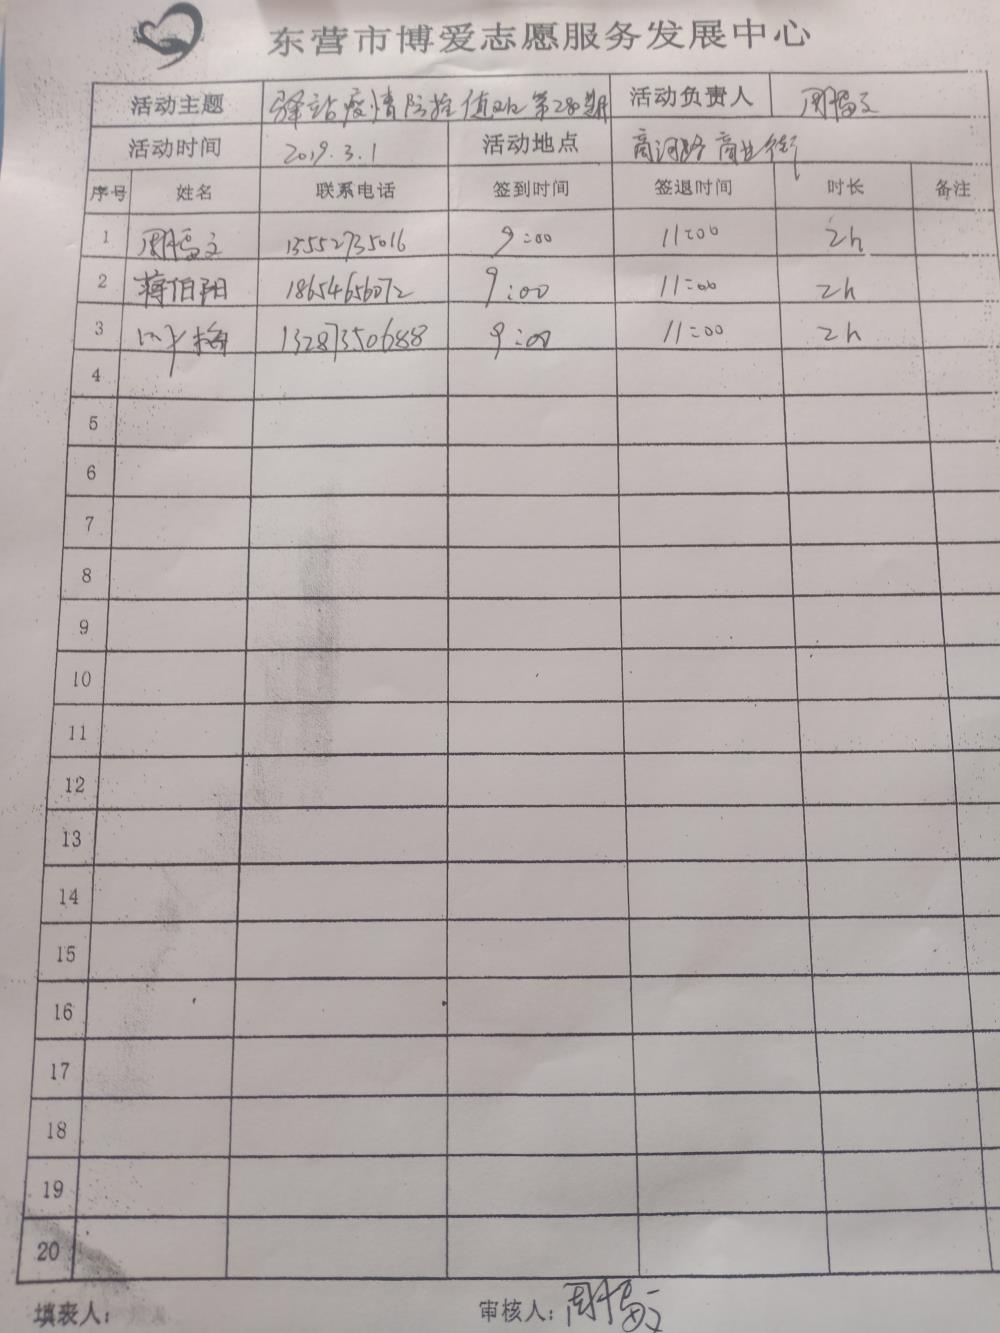 东营市博爱志愿服务发展中心
活动主题 驿站疫情防控值班第28期 活动负责人
活动时间 2019.3.1 活动地点 商河路商业街
序号 姓名 联系电话 签到时间 签退时间 时长 备注
1 15552735016 9:00 11:00 2h
2 蒋伯阳 18654656072 9:00 11:00 2h
3 梅 13287350688 9:00 11:00 2h
4
5
6
7
8
9
10
11
12
13
14
15
16
17
18
19
20
填表人: 审核人: